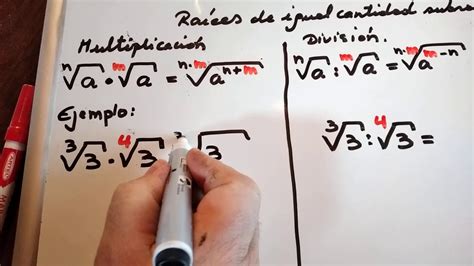 Raíces de igual cantidad subra
Multiplicación
ⁿ√a · ᵐ√a = ⁿ·ᵐ√aⁿ⁺ᵐ
Ejemplo:
³√3 · ⁴√3 = ³ √3
División.
ⁿ√a : ᵐ√a = ⁿ·ᵐ√aᵐ⁻ⁿ
³√3 : ⁴√3 =